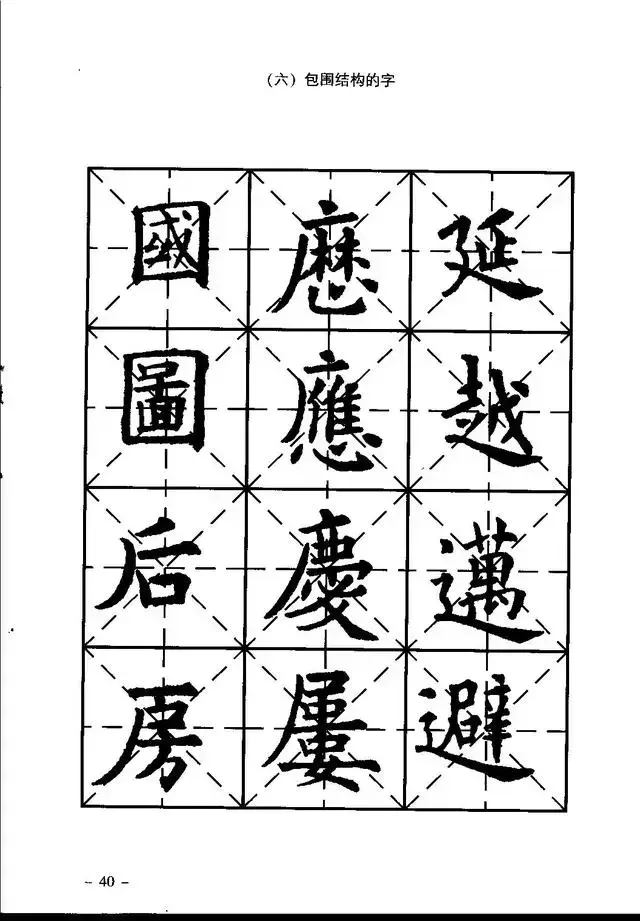 （六）包围结构的字
延越邁避
歷應慶屢
國圖后房
- 40 -